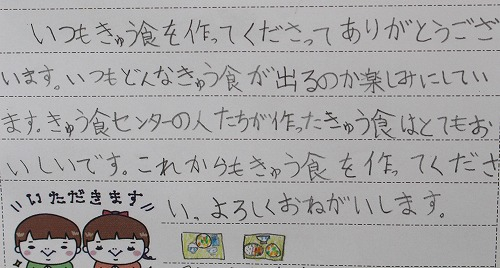 いつもきゅう食を作ってくださってありがとうござ
います。いつもどんなきゅう食が出るのか楽しみにしてい
ます。きゅう食センターの人たちが作ったきゅう食はとてもお
いしいです。これからもきゅう食を作ってくださ
い。よろしくおねがいします。
いただきます